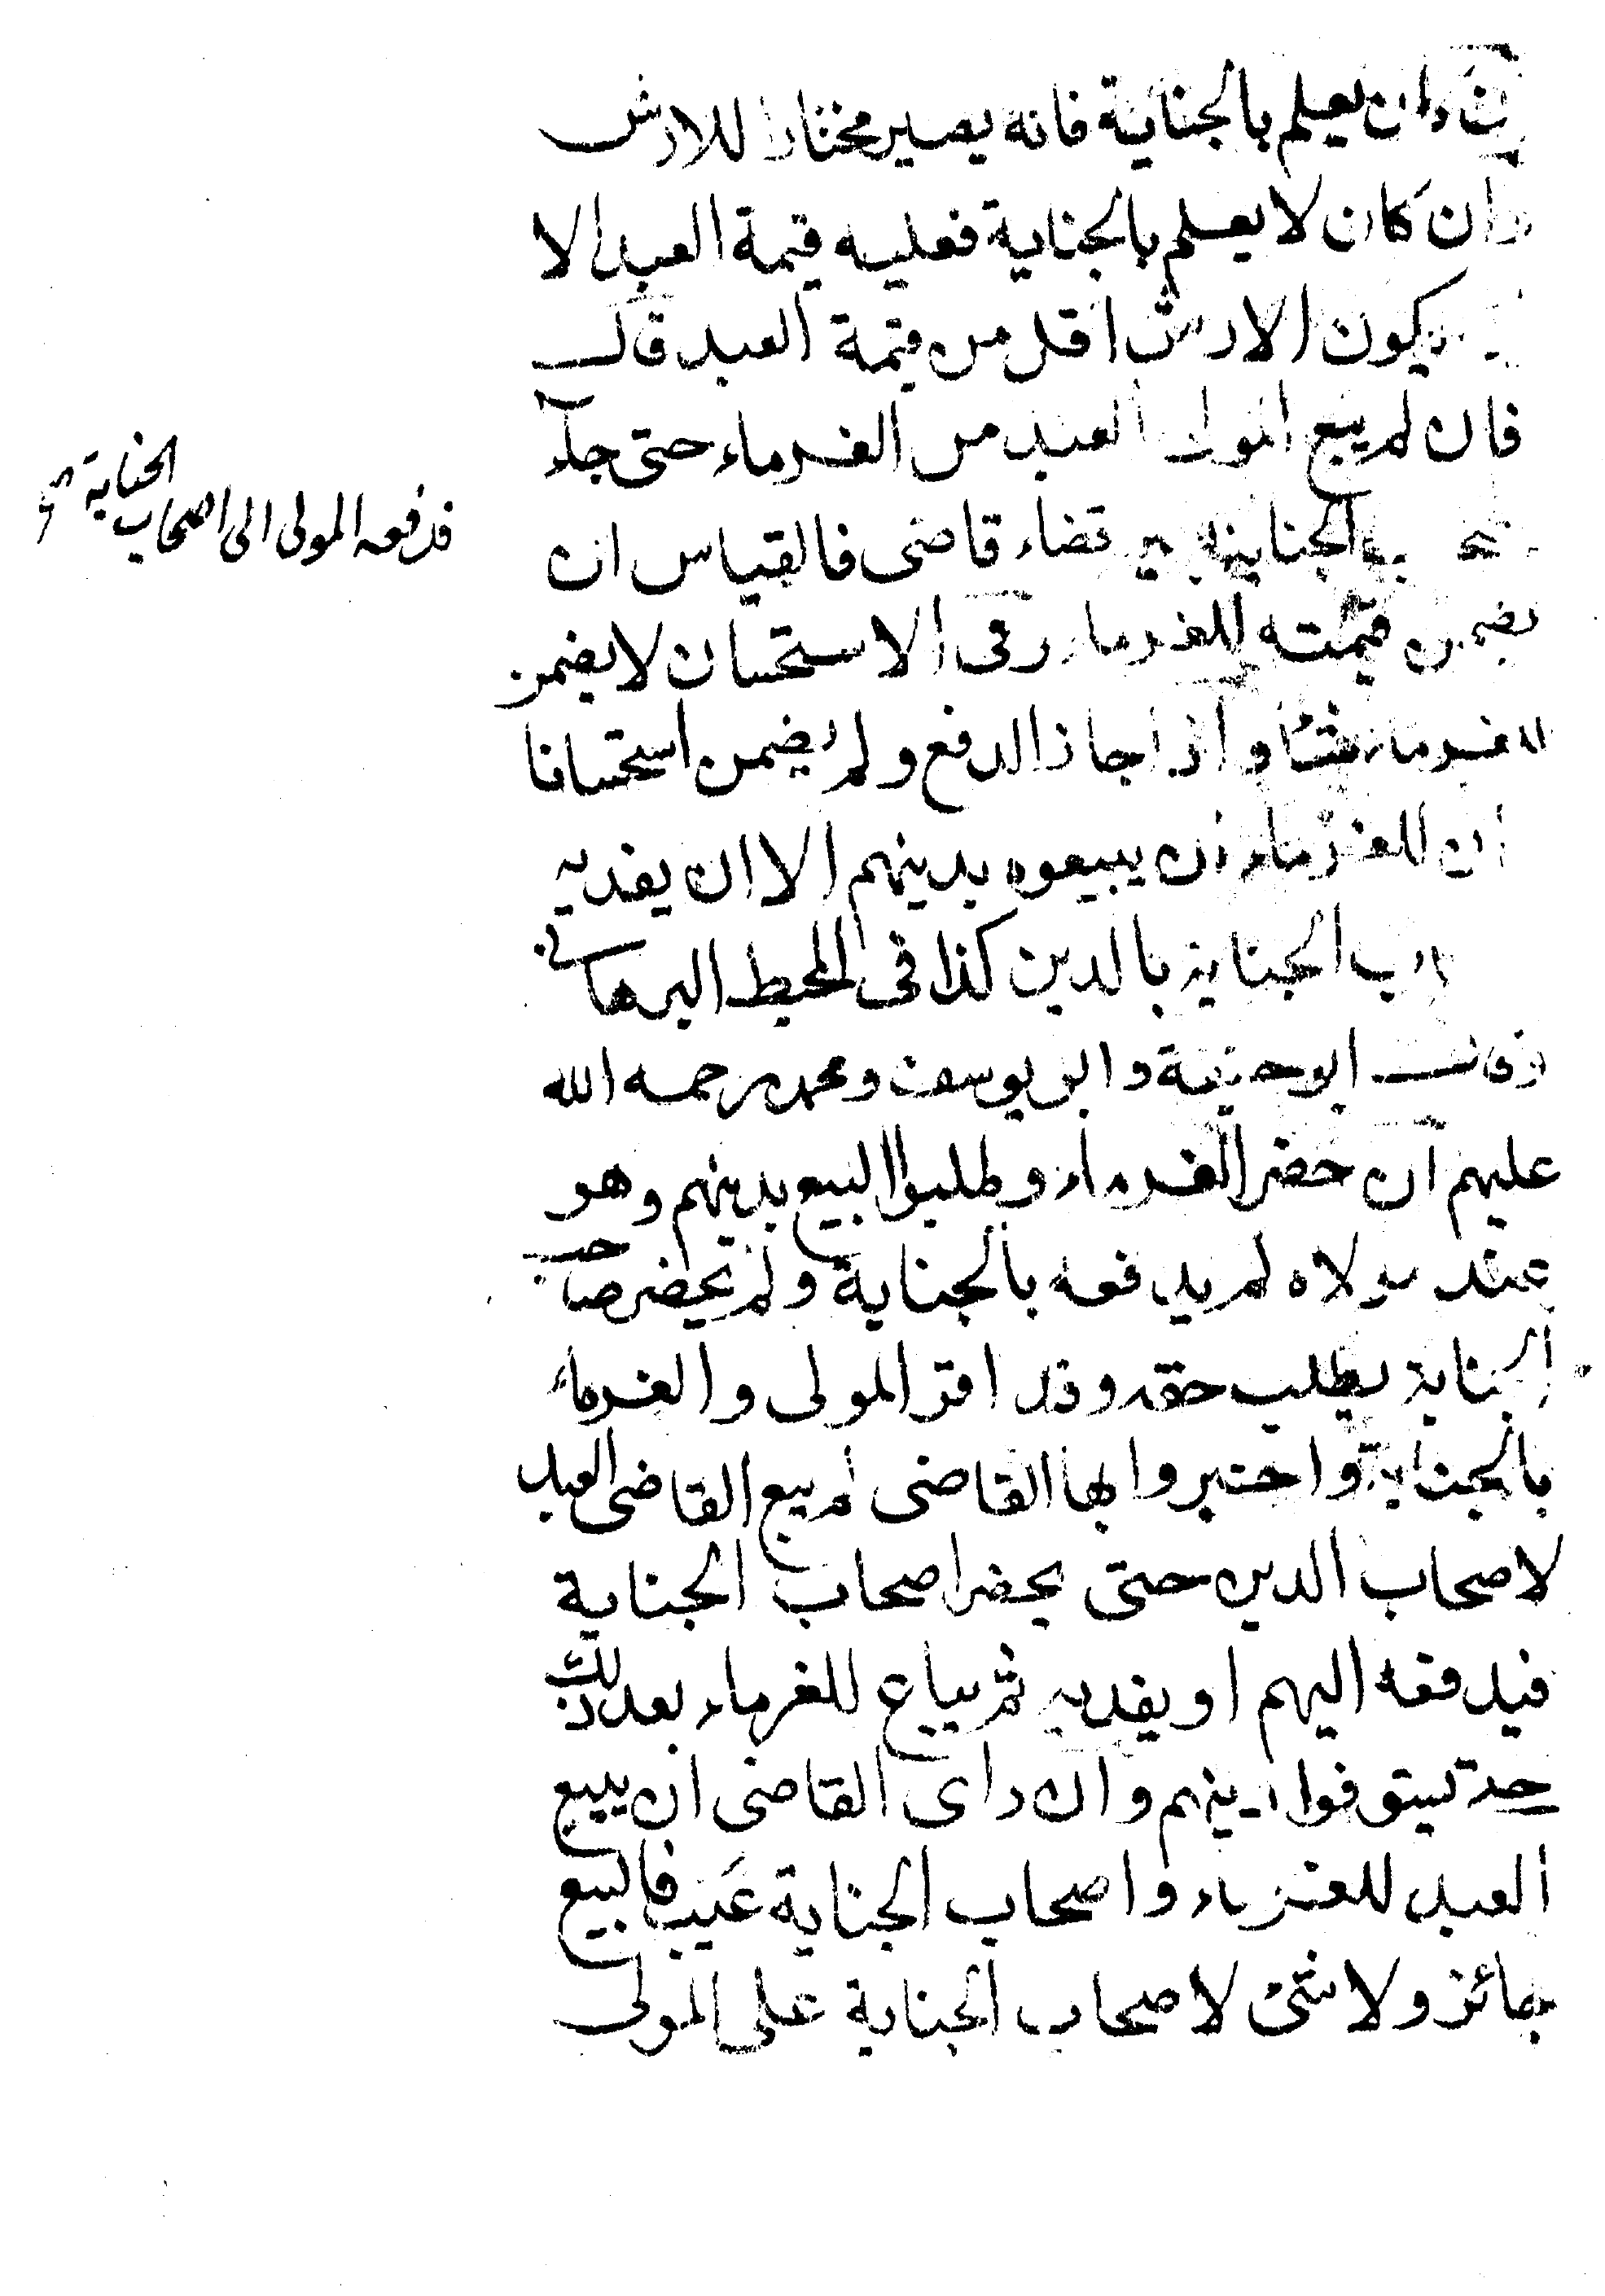 كان يعلم بالجناية فانه يصير مختارا للارش
وان كان لا يعلم بالجناية فعليه قيمة العبد الا
يكون الارش اقل من قيمة العبد قال
فان لم يبع المولى العبد من الغرماء حتى جاء
الجناية بغير قضاء قاضى فالقياس ان
فدفعه المولى الى اصحاب الجناية صح
يضمن قيمته للغرماء وفى الاستحسان لا يضمن
للغرماء شئا واذا جاز الدفع ولم يضمن استحسانا
ان للغرماء ان يبيعوه بدينهم الا ان يفديه
الجناية بالدين كذا فى المحيط البرهانى
وقال ابو حنيفة وابو يوسف ومحمد رحمه الله
عليهم ان حضر الغرماء وطلبوا البيع بدينهم وهو
عند مولاه لم يدفعه بالجناية ولم يحضر صاحب
الجناية يطلب حقه وقد اقر المولى والغرماء
بالجناية واخبروا بها القاضى لم يبع القاضى العبد
لاصحاب الدين حتى يحضر اصحاب الجناية
فيدفعه اليهم او يفديه ثم يباع للغرماء بعد ذلك
حتى يستوفوا دينهم وان راى القاضى ان يبيع
العبد للغرماء واصحاب الجناية غيب فالبيع
جائز ولا شئ لاصحاب الجناية على المولى